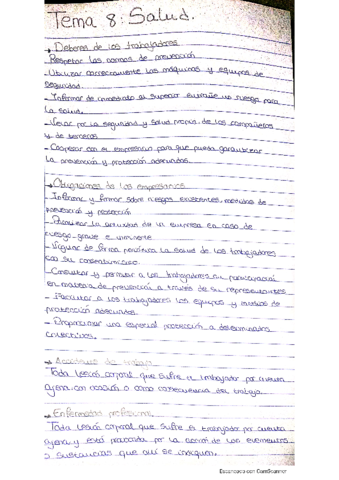 Tema 8: Salud.
→ Deberes de los trabajadores
Respetar las normas de prevención
- Utilizar correctamente las máquinas y equipos de
seguridad.
- Informar de inmediato al superior entrañe un riesgo para
la salud.
- Velar por la seguridad y salud propia, de los compañeros
y de terceros
- Cooperar con el empresario para que pueda garantizar
la prevención y protección adecuadas.
→ Obligaciones de los empresarios
- Informar y formar sobre riesgos existentes, medidas de
prevención y protección
- la actividad de la empresa en caso de
riesgo grave e inminente
- Vigilar de forma periódica la salud de los trabajadores
con su consentimiento
- Consultar y permitir a los trabajadores su participación
en materia de prevención a través de su representantes
- Facilitar a los trabajadores los equipos y medios de
protección adecuados.
- Proporcionar una especial protección a determinados
colectivos.
→ Accidente de trabajo
Toda lesión corporal que sufre el trabajador por cuenta
ajena con ocasión o como consecuencia del trabajo.
→ Enfermedad profesional
Toda lesión corporal que sufre el trabajador por cuenta
ajena y está provocada por la acción de los elementos
o sustancias que aquí se indiquen.
Escaneado con CamScanner